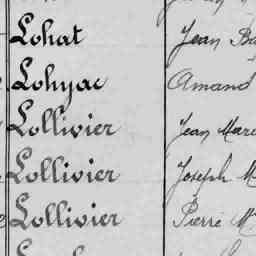 Lohat Jean Ba
Lohyac Amand
Lollivier Jean Mari
Lollivier Joseph M
Lollivier Pierre M